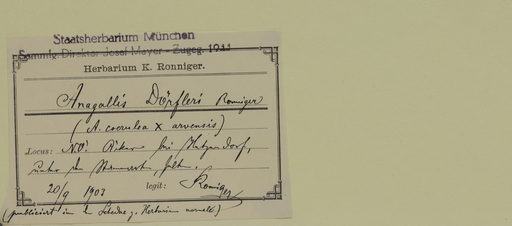 Staatsherbarium München
Sammlg. Direktor Josef Mayer - Zugeg. 1941
Herbarium K. Ronniger.
Anagallis Dörfleri Ronniger
(A. coerulea x arvensis)
Locus: N.Ö. bei Hetzendorf,
20/9 1903 legit: Ronniger
(publiciert in Schedae z. Herbarium normale)